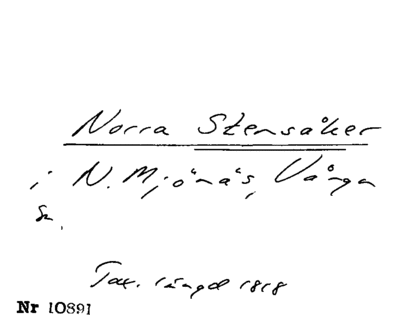 Norra Stensåker
i N. Mjönäs, Vånga
sn.
Tax. längd 1818
Nr 10891